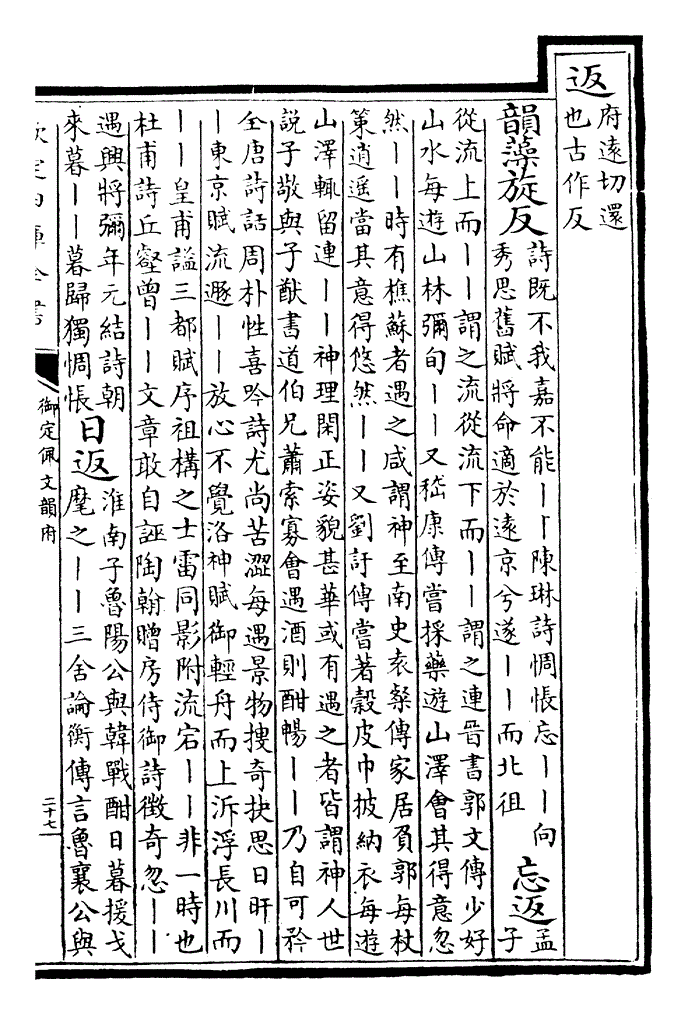 返府遠切還
也古作反
韻藻旋反詩既不我嘉不能丨丨陳琳詩惆悵忘丨丨向
秀思舊賦將命適於遠京兮遂丨丨而北徂
忘返孟
子
從流上而丨丨謂之流從流下而丨丨謂之連晉書郭文傳少好
山水每遊山林彌旬丨丨又嵇康傳嘗採藥遊山澤會其得意忽
然丨丨時有樵蘇者遇之咸謂神至南史袁粲傳家居負郭每杖
策逍遥當其意得悠然丨丨又劉訏傳嘗著穀皮巾披納衣每遊
山澤輒留連丨丨神理閑正姿貌甚華或有遇之者皆謂神人世
說子敬與子猷書道伯兄蕭索寡會遇酒則酣暢丨丨乃自可矜
全唐詩話周朴性喜吟詩尤尚苦澀每遇景物搜奇抉思日旰丨
丨東京賦流遯丨丨放心不覺洛神賦御輕舟而上泝浮長川而
丨丨皇甫謐三都賦序祖構之士雷同影附流宕丨丨非一時也
杜甫詩丘壑曾丨丨文章敢自誣陶翰贈房侍御詩徵奇忽丨丨
遇興將彌年元結詩朝
來暮丨丨暮歸獨惆悵
日返淮南子魯陽公與韓戰酣日暮援戈
麾之丨丨三舍論衡傳言魯襄公與
欽定四庫全書
御定佩文韻府
二十七